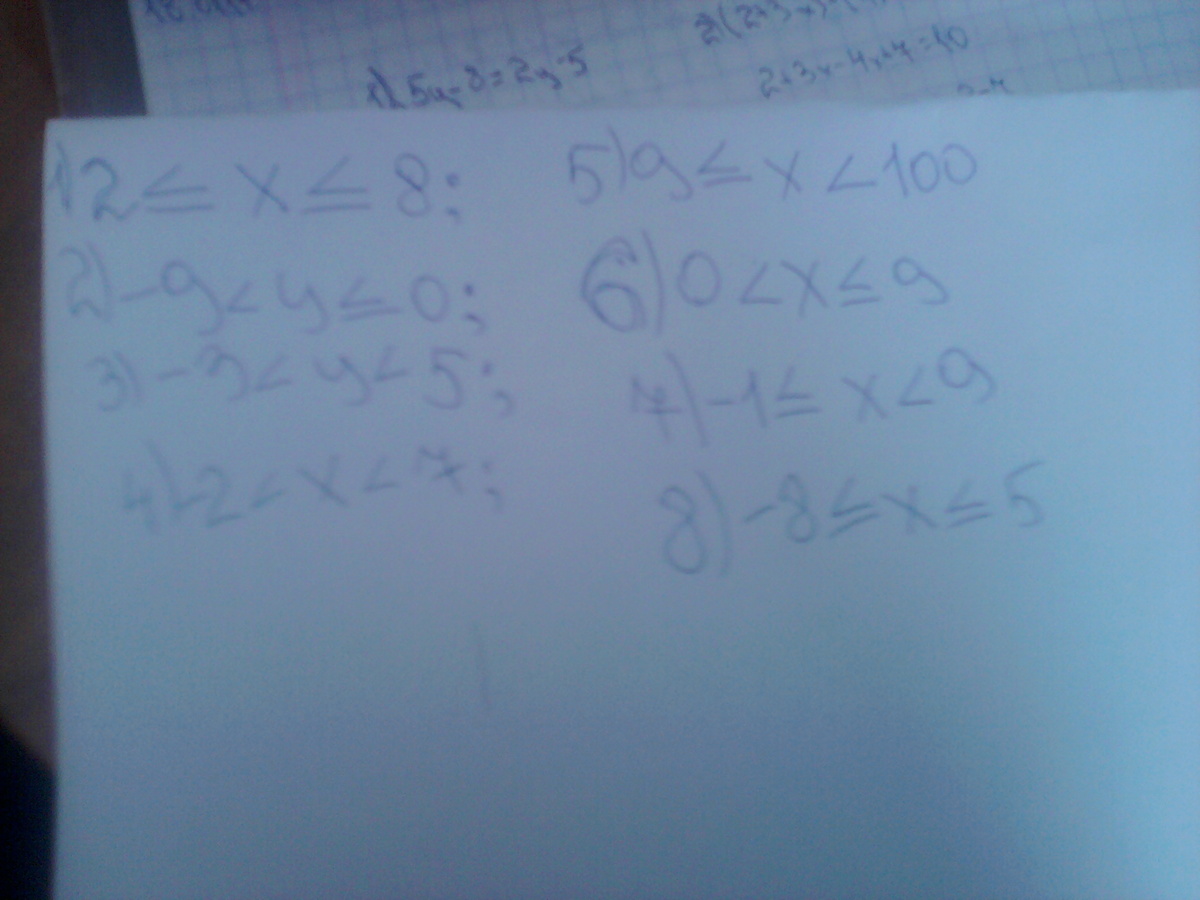 1). 5y-8=2y-5
2+3x-4x+7=10
1) 2 ≤ x ≤ 8;
2) -9 < y ≤ 0;
3) -3 < y < 5;
4) -2 < x < 7;
5) 9 ≤ x < 100
6) 0 < x ≤ 9
7) -1 ≤ x < 9
8) -8 ≤ x ≤ 5